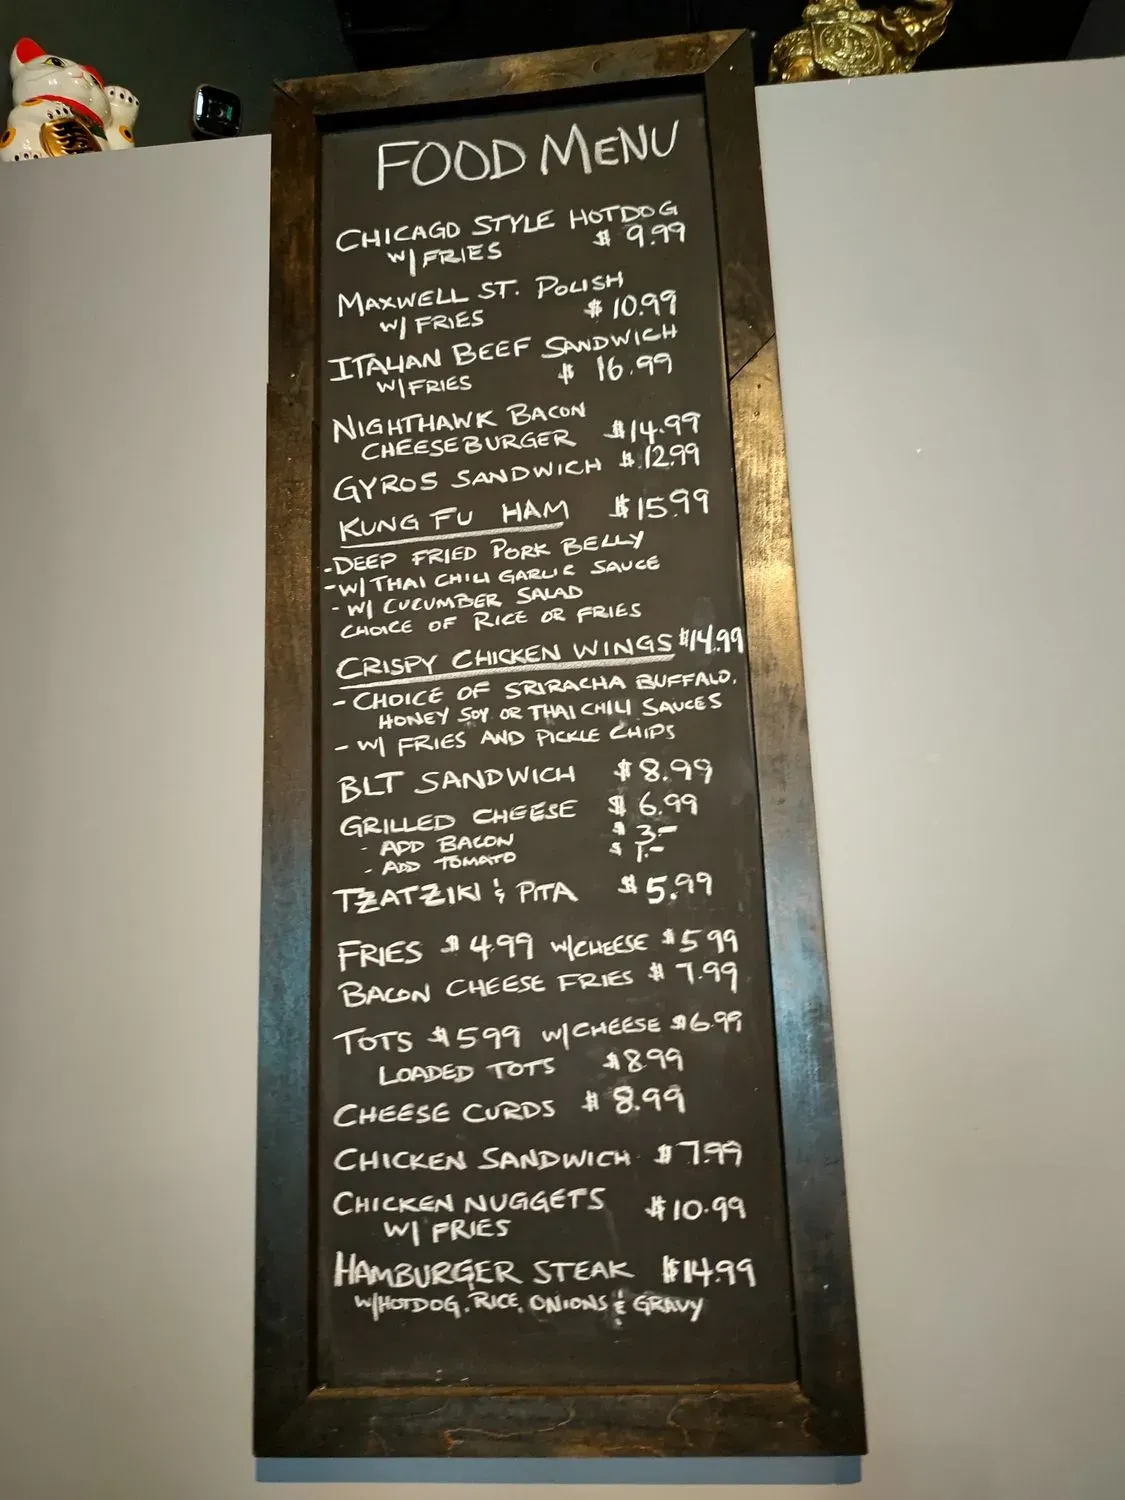 FOOD MENU
CHICAGO STYLE HOTDOG
W/ FRIES $ 9.99
MAXWELL ST. POLISH
W/ FRIES $ 10.99
ITALIAN BEEF SANDWICH
W/ FRIES $ 16.99
NIGHTHAWK BACON
CHEESEBURGER $14.99
GYROS SANDWICH $ 12.99
KUNG FU HAM $15.99
-DEEP FRIED PORK BELLY
-W/ THAI CHILI GARLIC SAUCE
- W/ CUCUMBER SALAD
CHOICE OF RICE OR FRIES
CRISPY CHICKEN WINGS $14.99
- CHOICE OF SRIRACHA BUFFALO,
HONEY SOY OR THAI CHILI SAUCES
- W/ FRIES AND PICKLE CHIPS
BLT SANDWICH $8.99
GRILLED CHEESE $ 6.99
- ADD BACON $ 3.-
- ADD TOMATO $ 1.-
TZATZIKI & PITA $ 5.99
FRIES $ 4.99 W/CHEESE $5 99
BACON CHEESE FRIES $ 7.99
TOTS $599 W/CHEESE $6.99
LOADED TOTS $899
CHEESE CURDS $ 8.99
CHICKEN SANDWICH $7.99
CHICKEN NUGGETS $10.99
W/ FRIES
HAMBURGER STEAK $14.99
W/HOTDOG, RICE, ONIONS & GRAVY